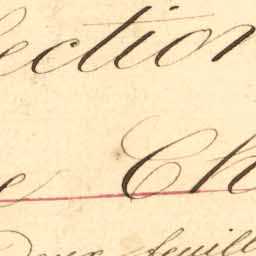 ection
e Ch
Deux feuill